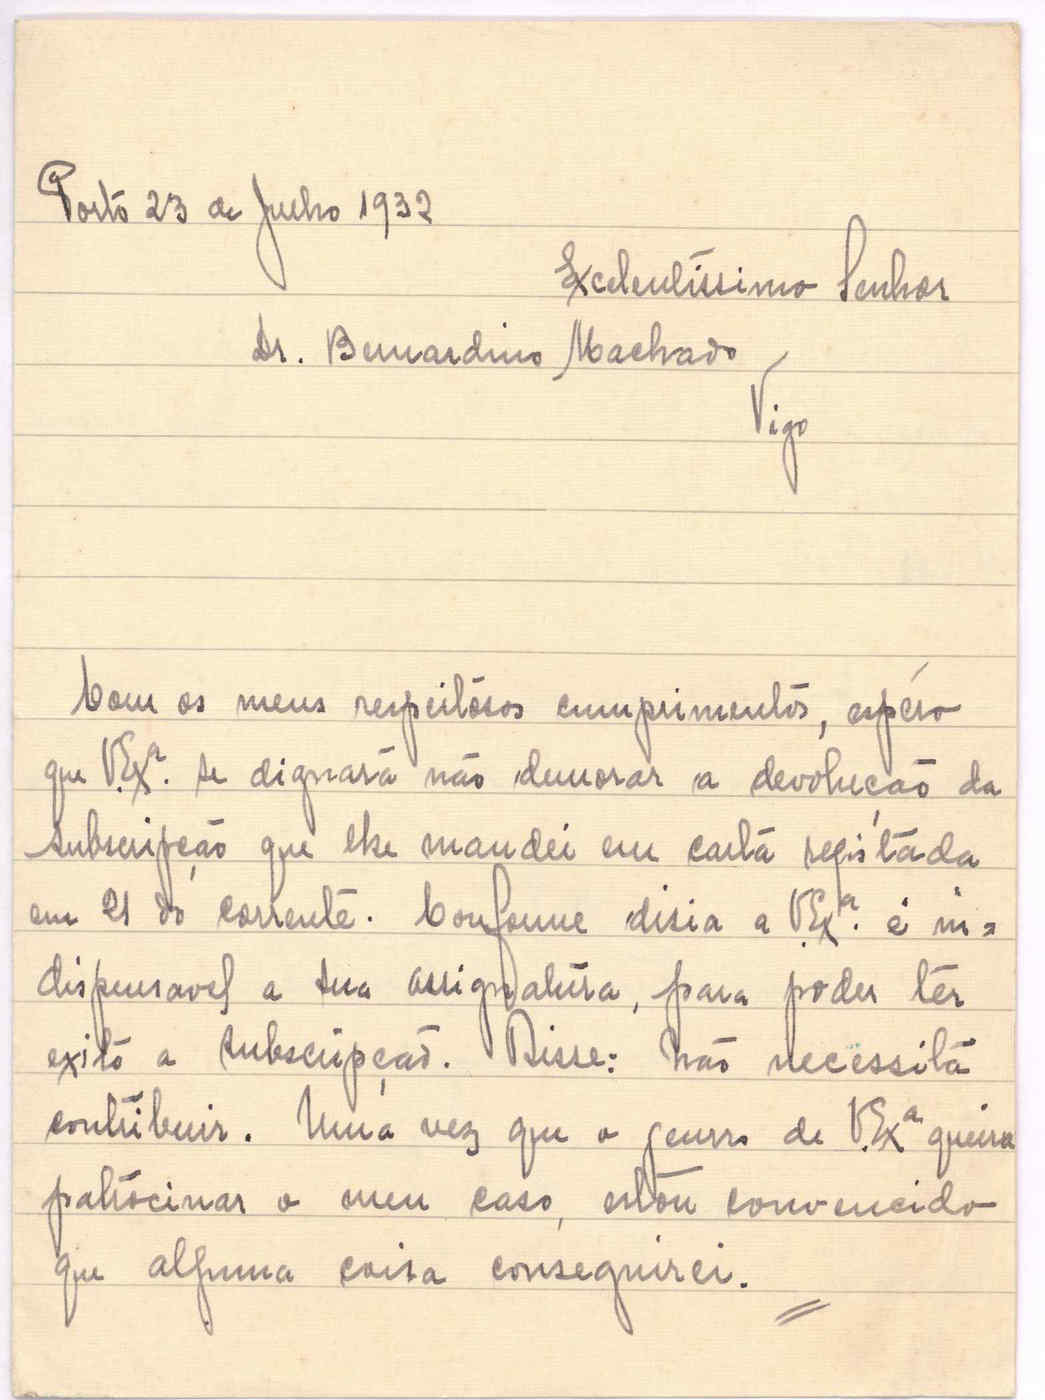 Porto 23 de Julho 1932
Excelentissimo Senhor
Dr. Bernardino Machado
Vigo
Com os meus respeitosos cumprimentos, espéro
que V.Exª. se dignará não demorar a devolução da
subscripção que lhe mandei em carta registada
em 21 do corrente. Conforme disia a V.Exª. é in=
dispensavel a sua assignatura, para poder ter
exito a subscripção. Disse: Não necessita
contribuir. Uma vez que o genrro de V.Exª queira
patrocinar o meu caso, estou convencido
que alguma coisa conseguirei.